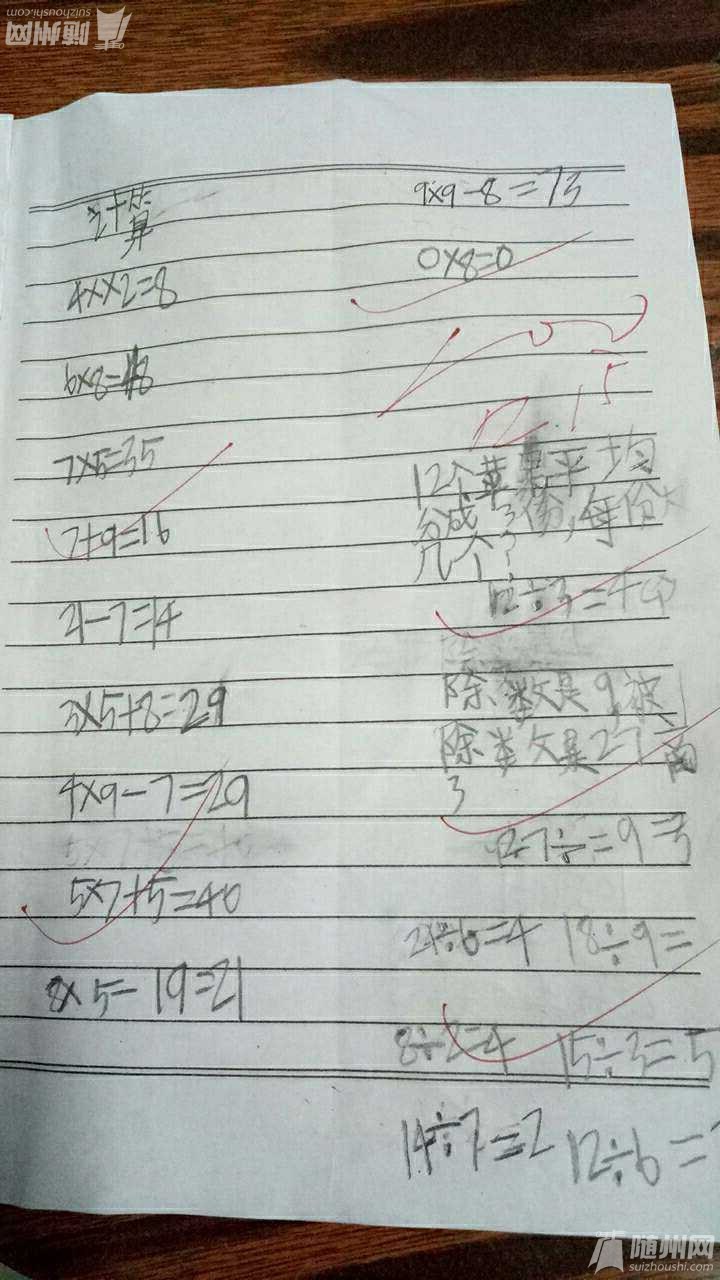 计算
4××2=8
6×8=48
7×5=35
7+9=16
21-7=14
3×5+8=29
4×9-7=29
5×7+5=40
8×5-19=21
9×9-8=73
0×8=0
12.15
12个苹果平均
分成3份,每份
几个?
12÷3=4
除数是9,被
除数是27商
3
27÷=9=3
24÷6=4 18÷9=
8÷2=4 15÷3=5
14÷7=2 12÷6=
随州网
suizhoushi.com
随州网
suizhoushi.com